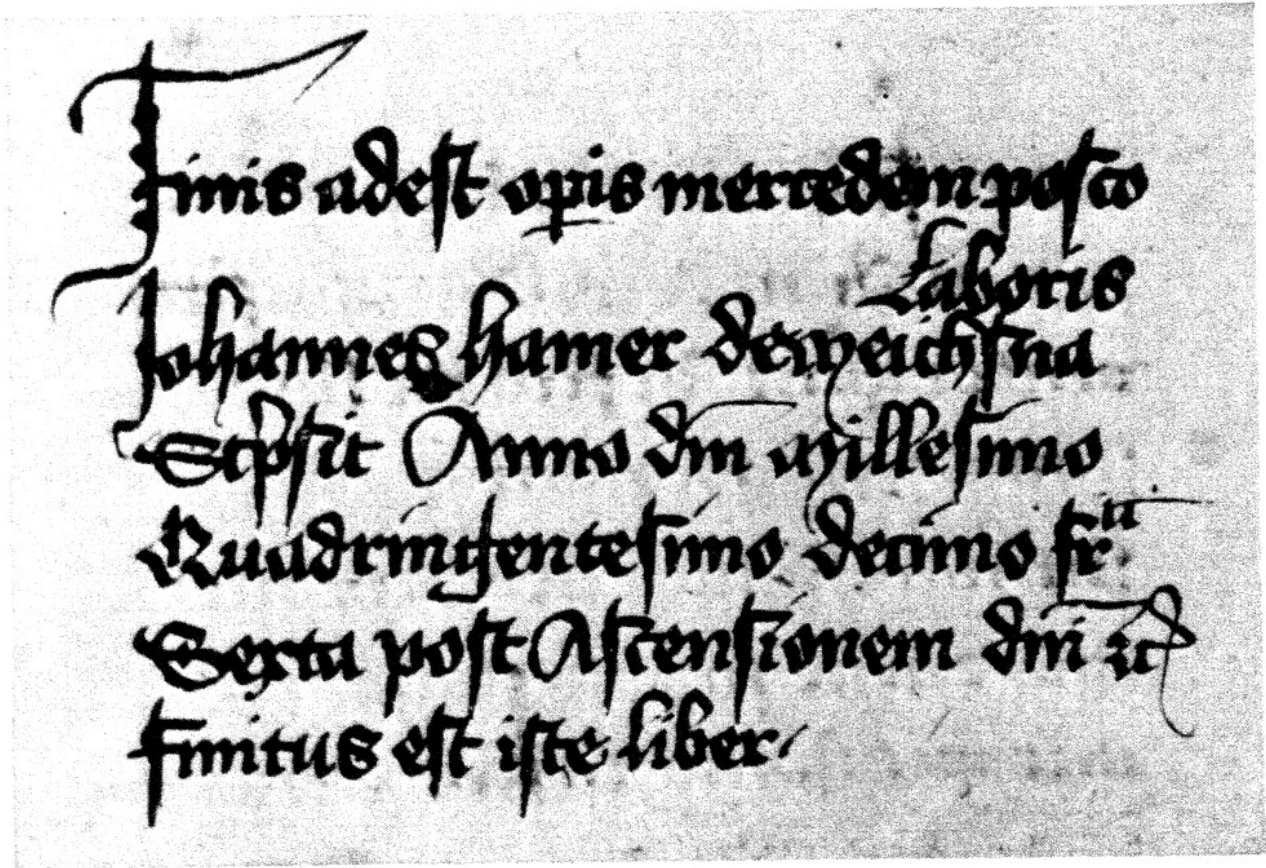 Finis adest opis mercedem posco
Laboris
Johannes hamer de weichsna
Scpsit Anno dm Millesimo
Quadringentesimo decimo fr
Sexta post Ascensionem dni
finitus est iste liber.